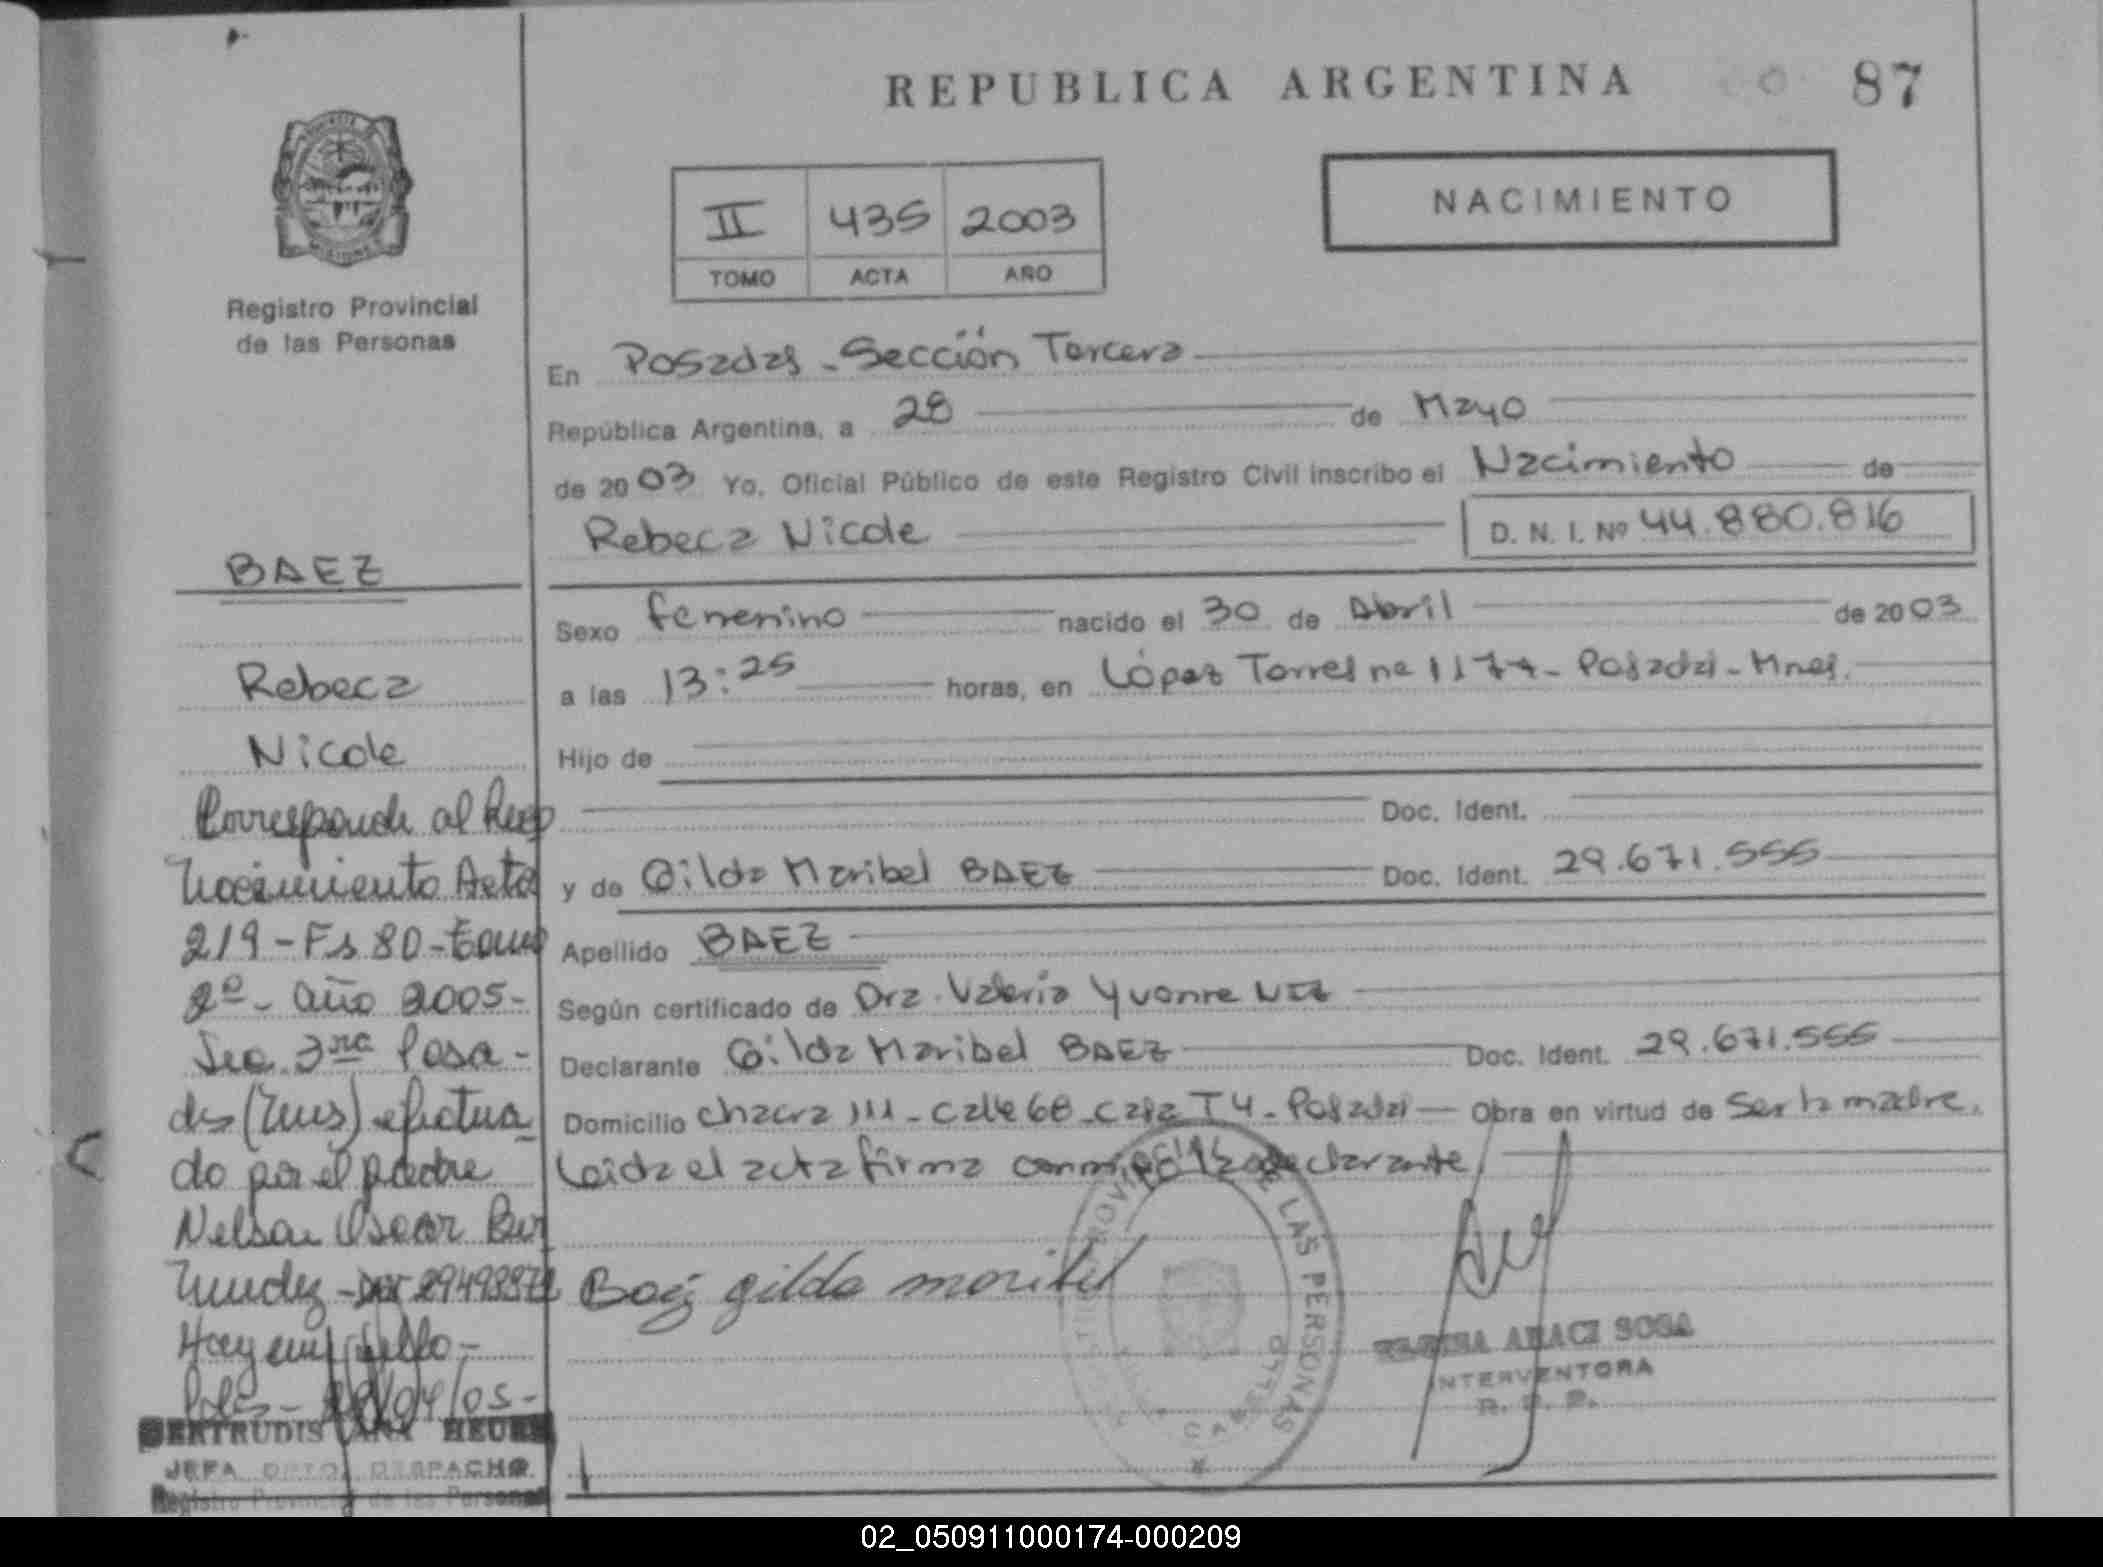 REPUBLICA ARGENTINA 87
NACIMIENTO
II 435 2003
TOMO ACTA AÑO
Registro Provincial
de las Personas
En Posadas - Sección Tercera
República Argentina, a 28 de Mayo
de 2003 Yo, Oficial Público de este Registro Civil inscribo el Nacimiento de
Rebeca Nicole D. N. I. Nº 44.880.816
Sexo femenino nacido el 30 de Abril de 2003
a las 13:25 horas, en López Torres nº 1177 - Posadas - Mnes.
Hijo de
Doc. Ident.
y de Gilda Maribel BAEZ Doc. Ident. 29.671.555
Apellido BAEZ
Según certificado de Dra. Valeria Yvonne
Declarante Gilda Maribel BAEZ Doc. Ident. 29.671.555
Domicilio chacra 111 - calle 68 - casa T4 - Posadas - Obra en virtud de ser la madre.
Leida el acta firma conmigo la declarante
Baez gilda maribel
ARACI SOSA
INTERVENTORA
R. P. P.
DE LAS PERSONAS
BAEZ
Rebeca
Nicole
Corresponde al Reco
nocimiento Acta
219 - Fs 80 - Tomo
2º - año 2005 -
Sec. 3ra Posa -
das (Mns) efectua
do por el padre
Nelson Oscar Ber
mudez -
Hay un sello -
/04/05 -
GERTRUDIS ANA
JEFA DPTO. DESPACHO
Registro Provincial de las Personas
02_050911000174-000209